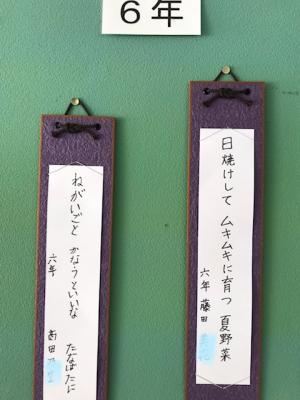 6年
日焼けして ムキムキに育つ 夏野菜
六年 藤田
ねがいごと かなうといいな たなばたに
六年 高田